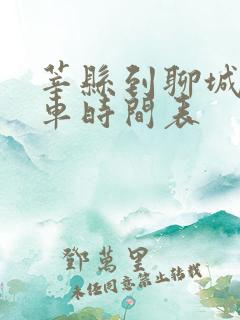 莘縣到聊城
車時間表
鄧萬里
未经同意禁止转载